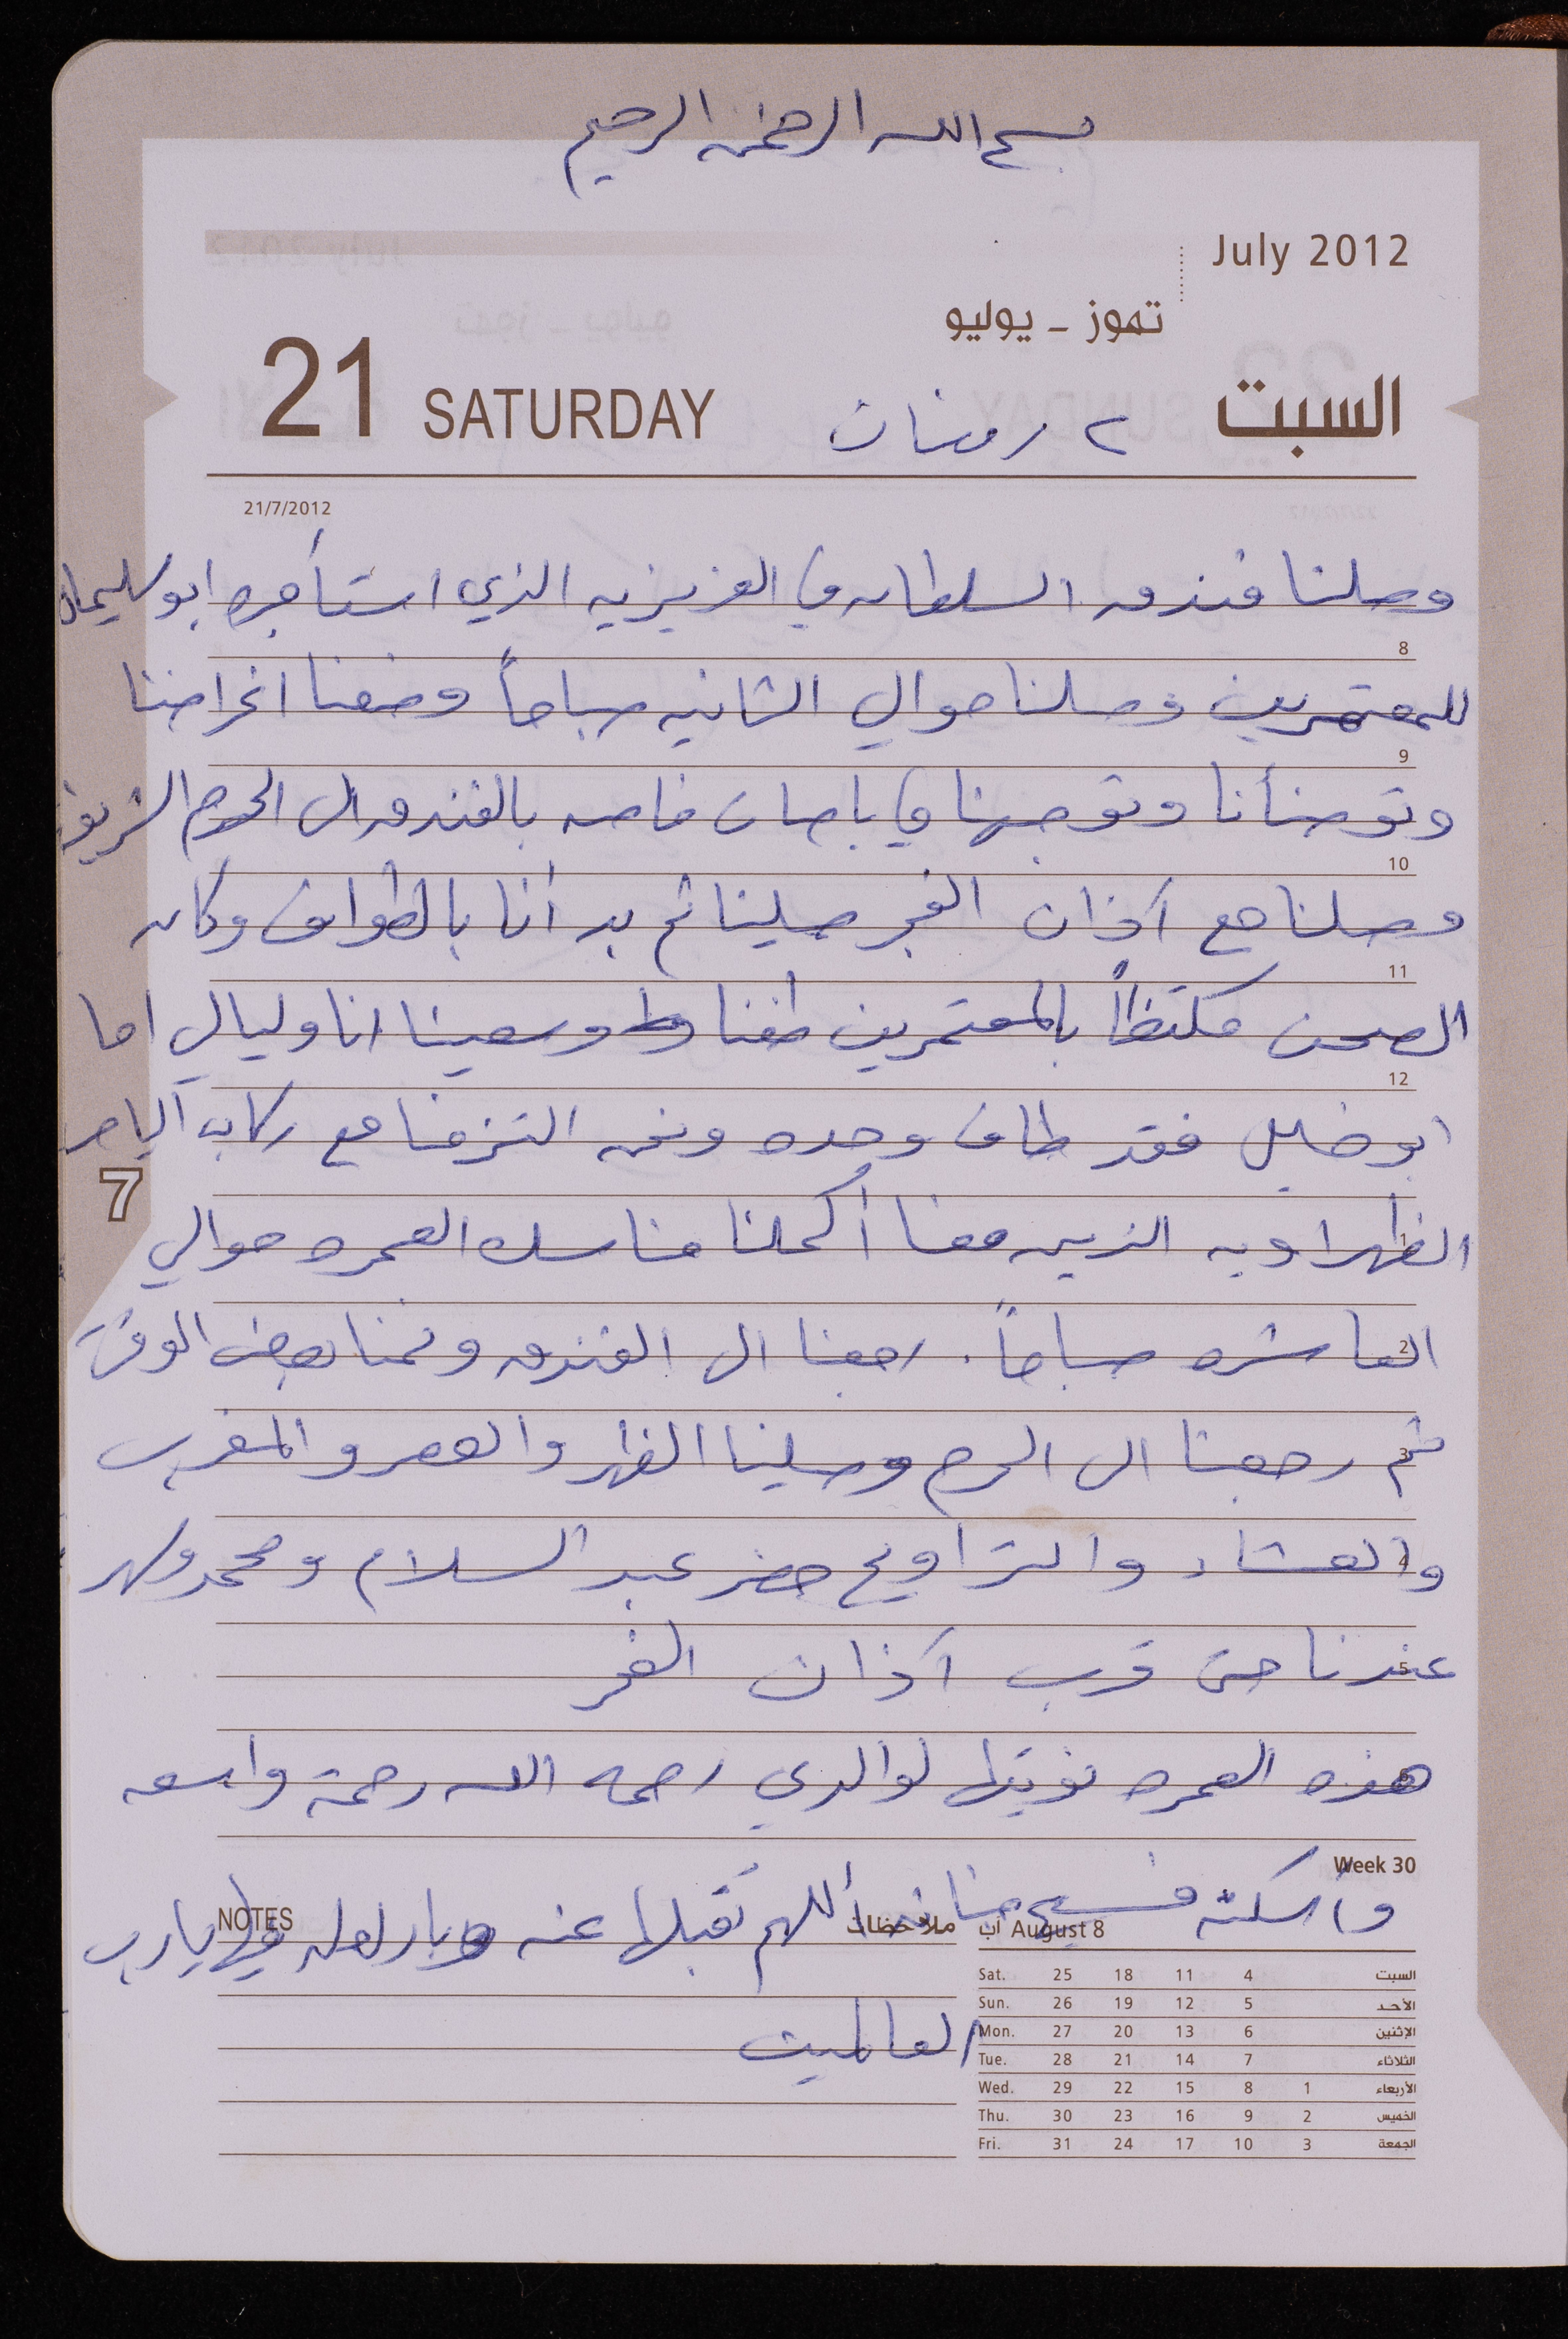 بسم الله الرحمن الرحيم
July 2012
تموز - يوليو
21 SATURDAY ٢ رمضان السبت
21/7/2012
وصلنا فندق السلطان في العزيزيه الذي استأجره ابو سليمان
8
للمعتمرين وصلنا حوالي الثانيه صباحاً وضعنا اغراضنا
9
وتوضأنا وتوجهنا في باصات خاصه بالفندق الى الحرم الشريف
10
وصلنا مع آذان الفجر صلينا ثم بدأنا بالطواف وكان
11
الصحن مكتظاً بالمعتمرين طفنا وسعينا انا وليالي اما
12
ابو خليل فقد طاف وحده ونحن التزمنا مع ركاب الباص
7
الظهراويه الذين معنا أكملنا مناسك العمره حوالي
1
العاشره صباحاً. رجعنا الى الفندق ونمنا بعض الوقت
2
ثم رجعنا الى الحرم وصلينا الظهر والعصر والمغرب
3
والعشاء والتراويح حضر عبد السلام ومحمد وسهر
4
عندنا حتى قرب آذان الفجر
5
هذه العمره نويتها لوالدي رحمه الله رحمة واسعه
Week 30
وأسكنه فسيح جنانه اللهم تقبلها عنه وبارك له فيها يارب
العالمين
NOTES ملاحظات
آب August 8
Sat. 25 18 11 4 السبت
Sun. 26 19 12 5 الأحد
Mon. 27 20 13 6 الإثنين
Tue. 28 21 14 7 الثلاثاء
Wed. 29 22 15 8 1 الأربعاء
Thu. 30 23 16 9 2 الخميس
Fri. 31 24 17 10 3 الجمعة